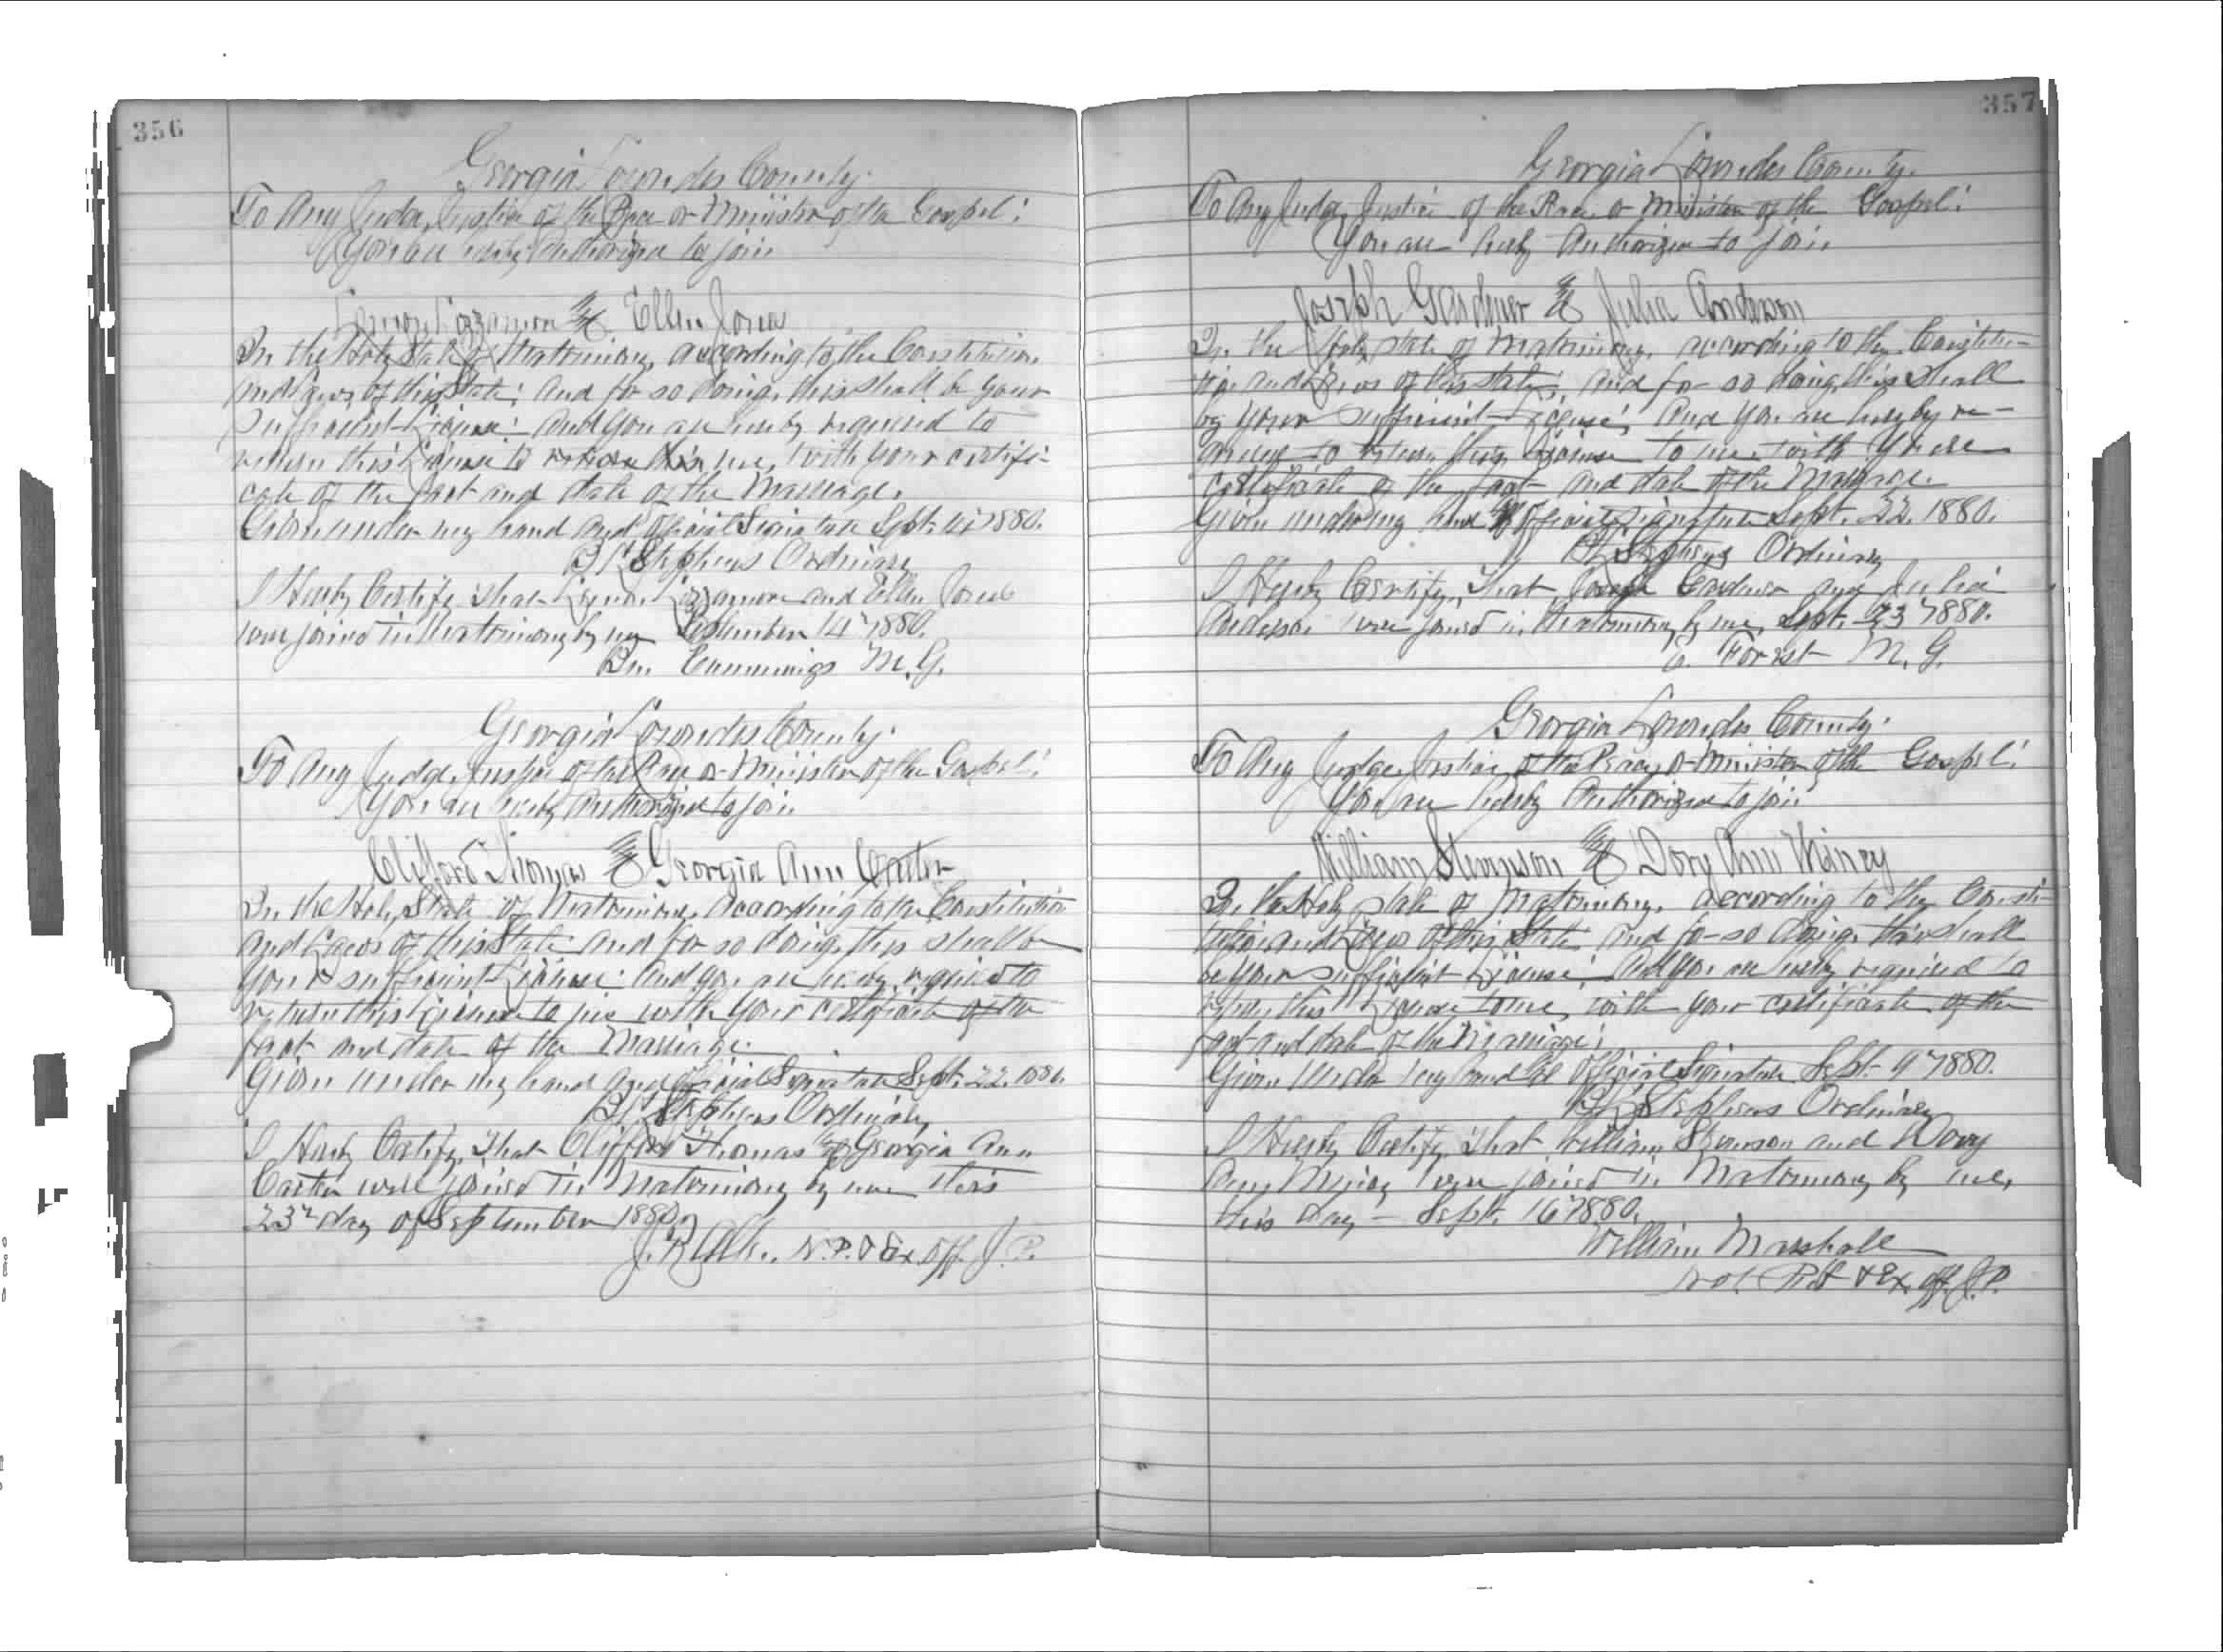 356
Georgia Lowndes County.
To Any Judge, Justice of the Peace or Minister of the Gospel:
You are hereby Authorized to join
& Ellen Jones
In the Holy State of Matrimony, according to the Constitution
and Laws of this State; and for so doing, this shall be your
sufficient License: And you are hereby required to
return this License to me, with your certifi-
cate of the fact and date of the Marriage.
Given under my hand and official Signature Sept. 1880.
Stephens Ordinary
I Hereby Certify, that and Ellen Jones
were joined in Matrimony by me September 14" 1880.
Ben Cummings M.G.
Georgia Lowndes County.
To Any Judge, Justice of the Peace or Minister of the Gospel:
You are hereby Authorized to join
Clifford Thomas & Georgia Ann Carter
In the Holy State of Matrimony, according to the Constitution
and Laws of this State and for so doing, this shall be
your sufficient License: And you are hereby required to
return this License to me with your certificate of the
fact and date of the Marriage.
Given under my hand and official Signature Sept. 22. 1880.
Stephens Ordinary
I Hereby Certify, that Clifford Thomas & Georgia Ann
Carter were joined in Matrimony by me this
23" day of September 1880.
J. R. N.P. & Ex. off. J.P.
357
Georgia Lowndes County.
To Any Judge, Justice of the Peace or Minister of the Gospel:
You are hereby Authorized to join
Joseph Gardner & Julia Anderson
In the Holy state of Matrimony, according to the Constitu-
tion and Laws of this state; and for so doing, this shall
be your sufficient License; And you are hereby re-
quired to return this License to me with your
certificate of the fact and date of the Marriage.
Given under my hand & official signature Sept. 22. 1880.
Stephens Ordinary
I Hereby Certify, that Joseph Gardner and Julia
Anderson were joined in Matrimony by me, Sept. 23" 1880.
Forest M.G.
Georgia Lowndes County.
To Any Judge, Justice of the Peace or Minister of the Gospel:
You are hereby Authorized to join
William Stevenson & Dory Ann Miney
In the Holy state of Matrimony, according to the Consti-
tution and Laws of this State and for so doing, this shall
be your sufficient License; And you are hereby required to
return this License to me, with your certificate of the
fact and date of the Marriage:
Given Under my hand & official Signature Sept. 9" 1880.
Stephens Ordinary
I Hereby Certify, that William Stevenson and Dory
Ann Miney were joined in Matrimony by me,
this day - Sept. 16" 1880.
William Marshall
Not. Pub. & Ex. off. J.P.